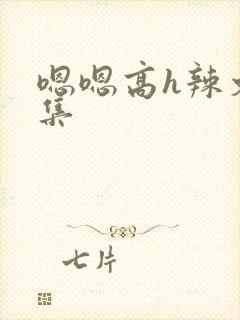 嗯嗯高h辣文
集
七片